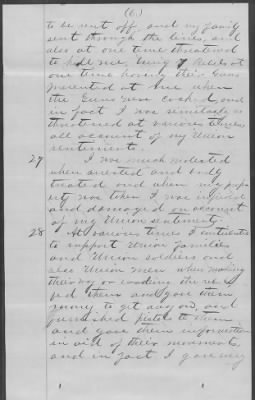 (6)
to be sent off and my family
sent through the lines, and
also at one time threatened
to kill me, being Rebels at
one time having their Guns
presented at me when
the Guns were cocked, and
in fact I was similarly
threatened at various times
all account of my Union
sentiments.
27 I was much molested
when arrested and badly
treated and when my prop
erty was taken I was injured
and damaged on account
of my Union sentiment.
28 At various times I contributed
to support Union families
and Union soldiers and
also Union men when making
their way or evading the rebels
fed them and gave them
money to get away, and
furnished pistols to them
and gave them information
in aid of their movements,
and in fact I gave my